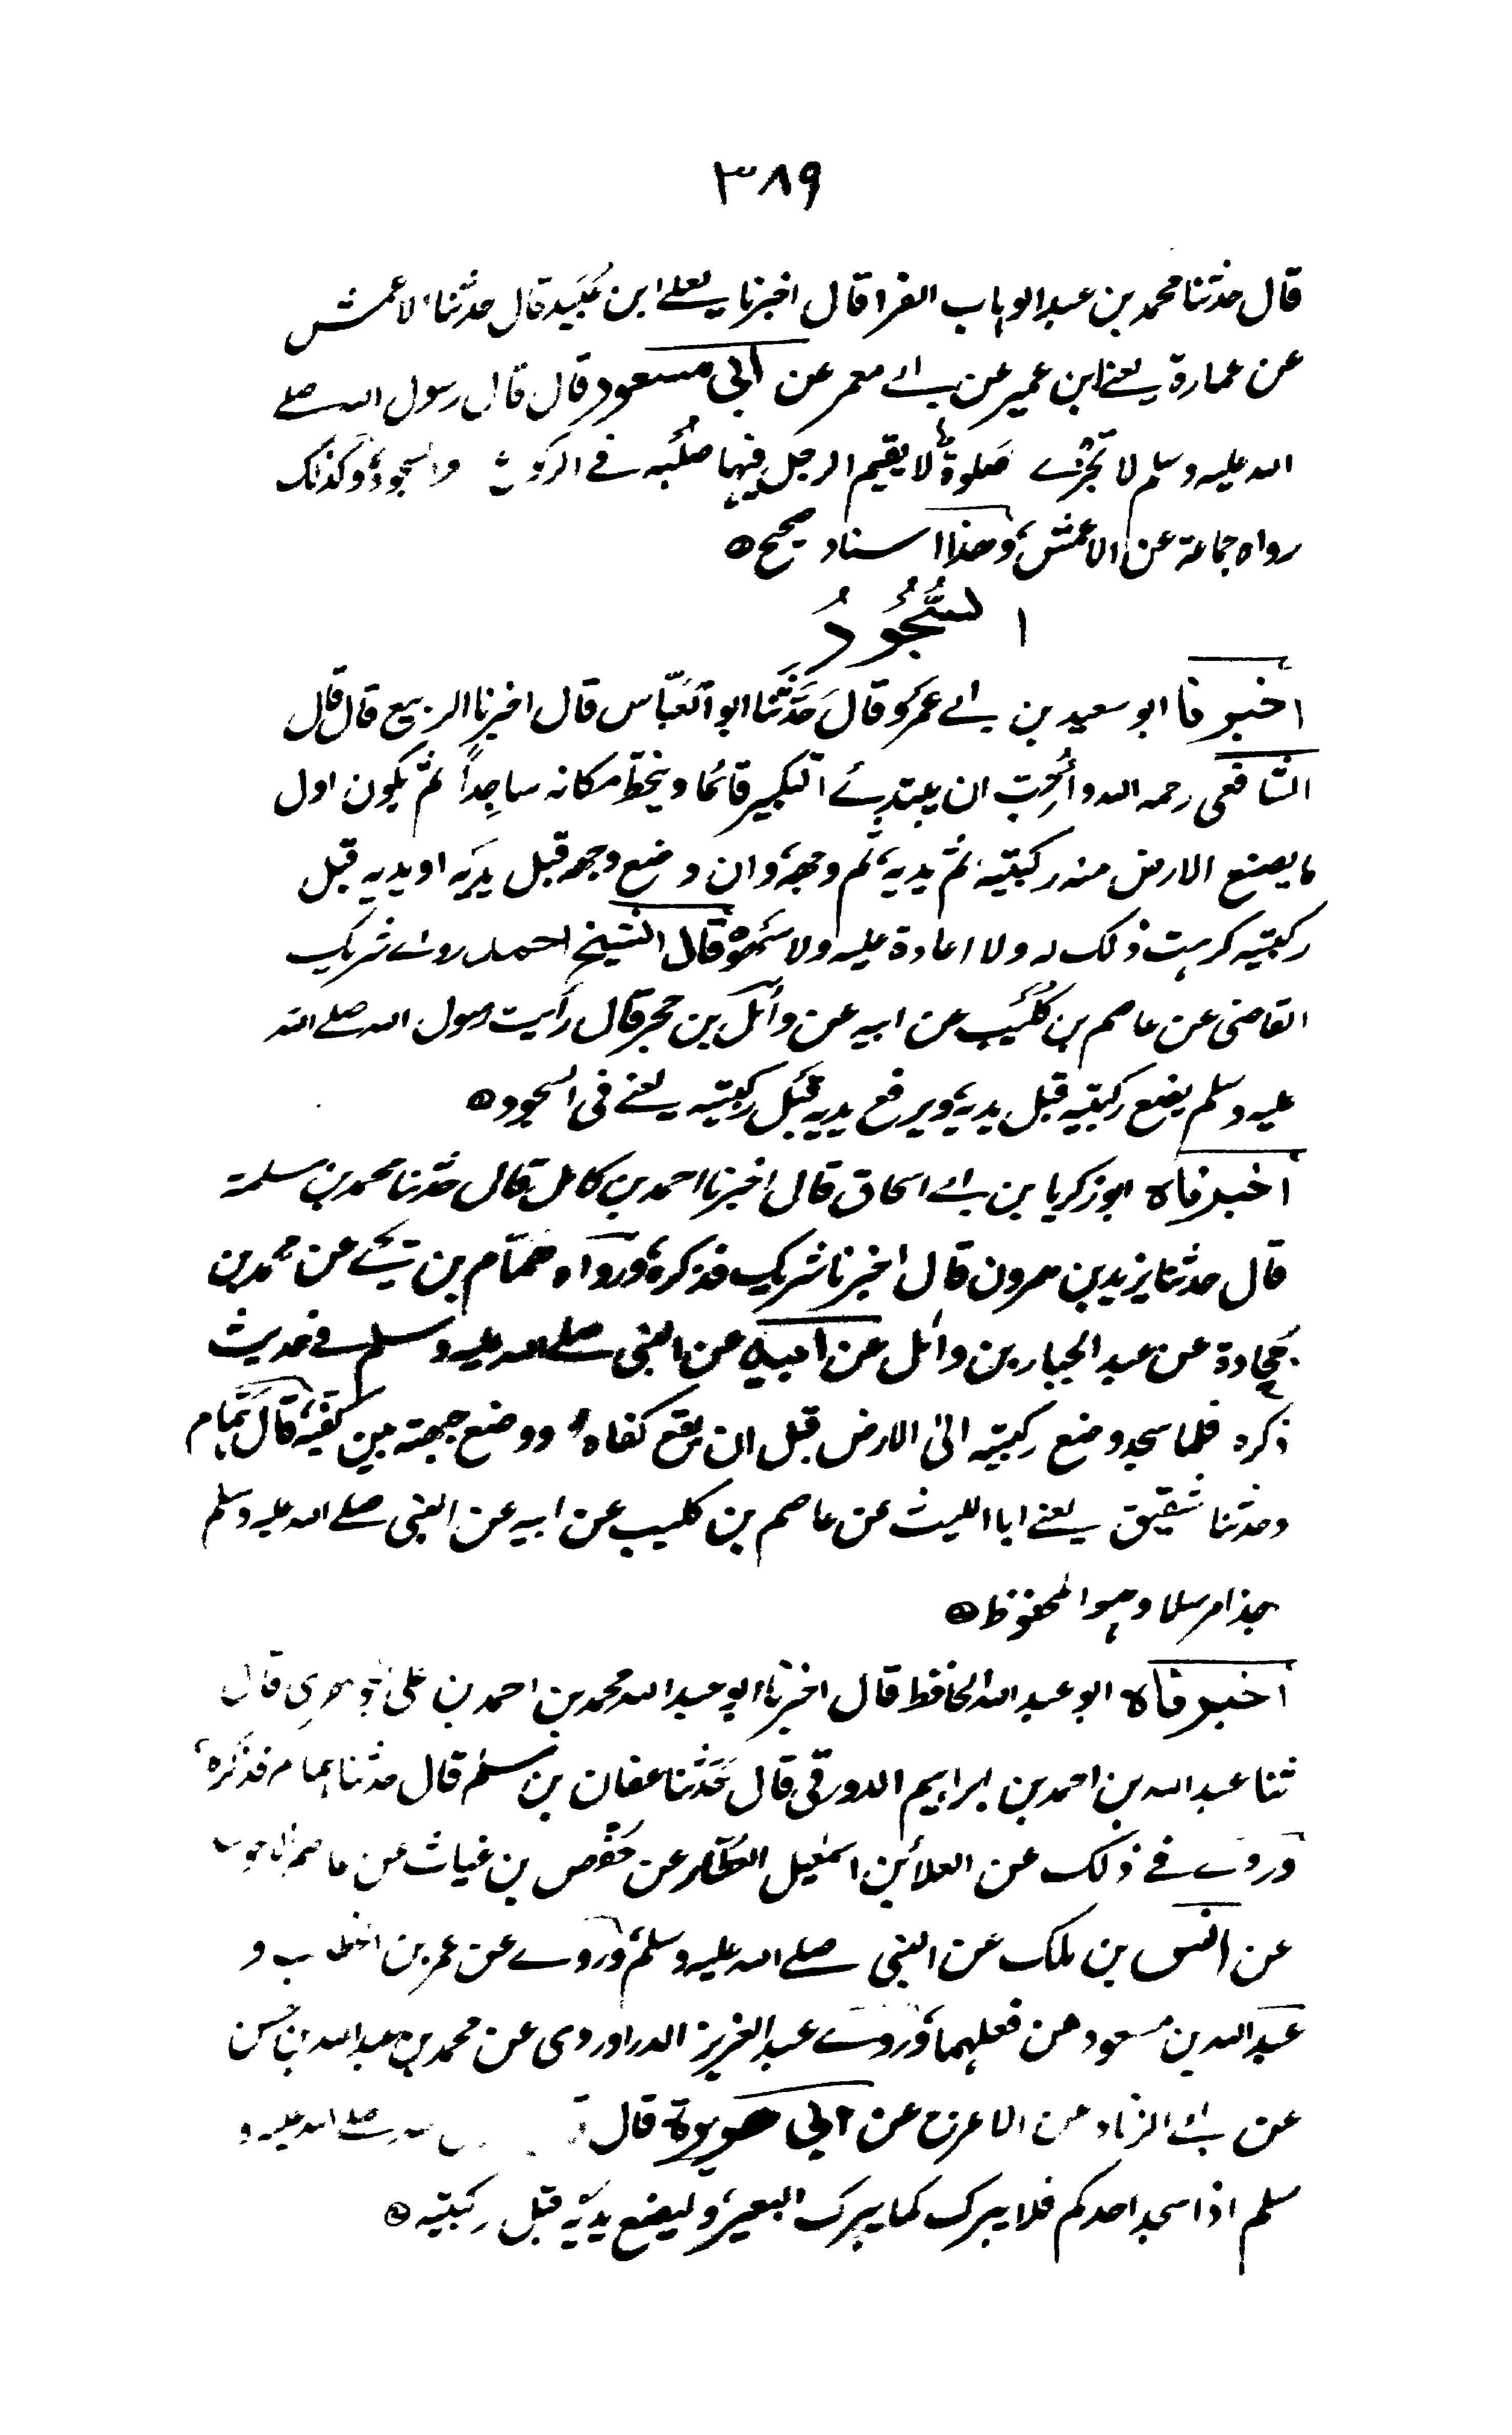 ٣٨٩
قال حدثنا محمد بن عبد الوهاب الفرا قال اخبرنا يعلے ابن عُبَيد قال حدثنا الاعمش
عن عمارة يعنے ابن عمير عن ابے معمر عن ابي مسعود قال قال رسول الله صلے
الله عليه وسلم لا تجزئے صلوةٌ لا يقيم الرجل فيها صُلبه فے الركوع والسجود، وكذلك
رواه جماعة عن الاعمش، وهذا اسناد صحيح ه
السُّجُودُ
اخبرنا ابو سعيد بن ابے عمرو قال حَدَّثنا ابو العَبّاس قال اخبرنا الربيع قال قال
الشافعى رحمه الله وأُحِبّ ان يبتدئے التكبير قائما وينحطّ مكانه ساجِداً ثمّ يكون اول
ما يضع الارض منه ركبتيه ثمّ يديه، ثم وجهه، وان وضع وجهه قبل يديه او يديه قبل
ركبتيه كرهت ذلك له ولا اعادة عليه ولا سَهو ه قال الشيخ احمد روے شريك
القاضى عن عاصم بن كُلَيب عن ابيه عن وائل بن حجر قال رأيت رسول الله صلے الله
عليه وسلم يضع ركبتيه قبل يديه، ويرفع يديه قبل ركبتيه يعنے فى السجود ه
اخبرناه ابو زكريا بن ابے اسحاق قال اخبرنا احمد بن كامل قال حدّثنا محمد بن مسلمة
قال حدثنا يزيد بن هرون قال اخبرنا شريك فذكره، ورواه همّام بن يحيے عن محمد بن
جُحادة عن عبد الجبار بن وائل عن ابيه عن النبى صلے الله عليه وسلم فے حديث
ذكره فلما سجد وضع ركبتيه الىٰ الارض قبل ان يقع كفاه، ووضع جبهته بين كفيه، قال همّام
وحدثنا شقيق يعنے ابا الليث عن عاصم بن كليب عن ابيه عن النبى صلے الله عليه وسلم
بهذا مرسلا وهو المحفوظ ه
اخبرناه ابو عبد الله الحافظ قال اخبرنا ابو عبد الله محمد بن احمد بن على قال
ثنا عبد الله بن احمد بن ابراهيم الدورقى قال حَدّثنا عفان بن مسلم قال حدثنا همام فذكره،
وروے فے ذلك عن العلا بن اسمٰعيل العطّار عن حَفص بن غياث عن عاصم الاحول
عن انس بن ملك عن النبى صلے الله عليه وسلم، وروے عن عمر بن الخطاب و
عبد الله بن مسعود من فعلهما، وروے عبد العزيز الدراوردى عن محمد بن عبد الله بن حسن
عن ابے الزناد عن الاعرج عن ابي هريرة قال صلے الله عليه و
سلم اذا سجد احدكم فلا يبرك كما يبرك البعير، وليضع يديه قبل ركبتيه ه